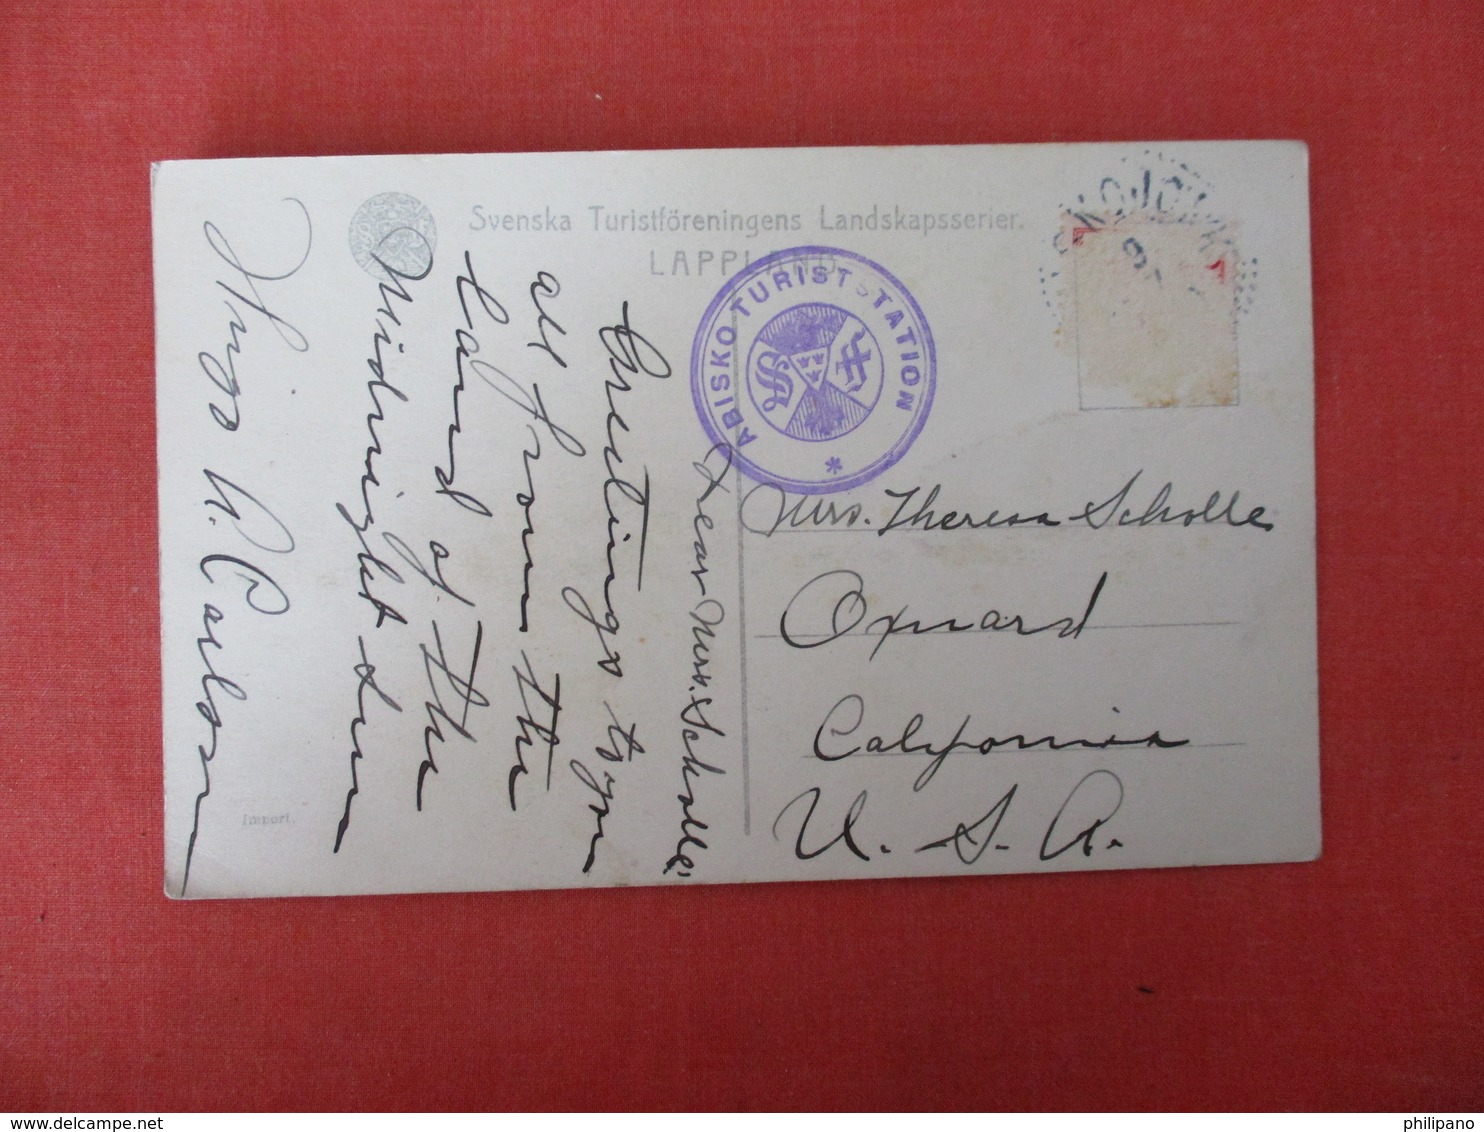 Svenska Turistföreningens Landskapsserier.
LAPPLAND
ABISKO TURISTSTATION
*
Dear Mrs. Scholle,
Greetings to you
all from the
Land of the
Midnight Sun
Hugo N. Carlson
Mrs. Theresa Scholle
Oxnard
California
U. S. A.
Import.
philipano